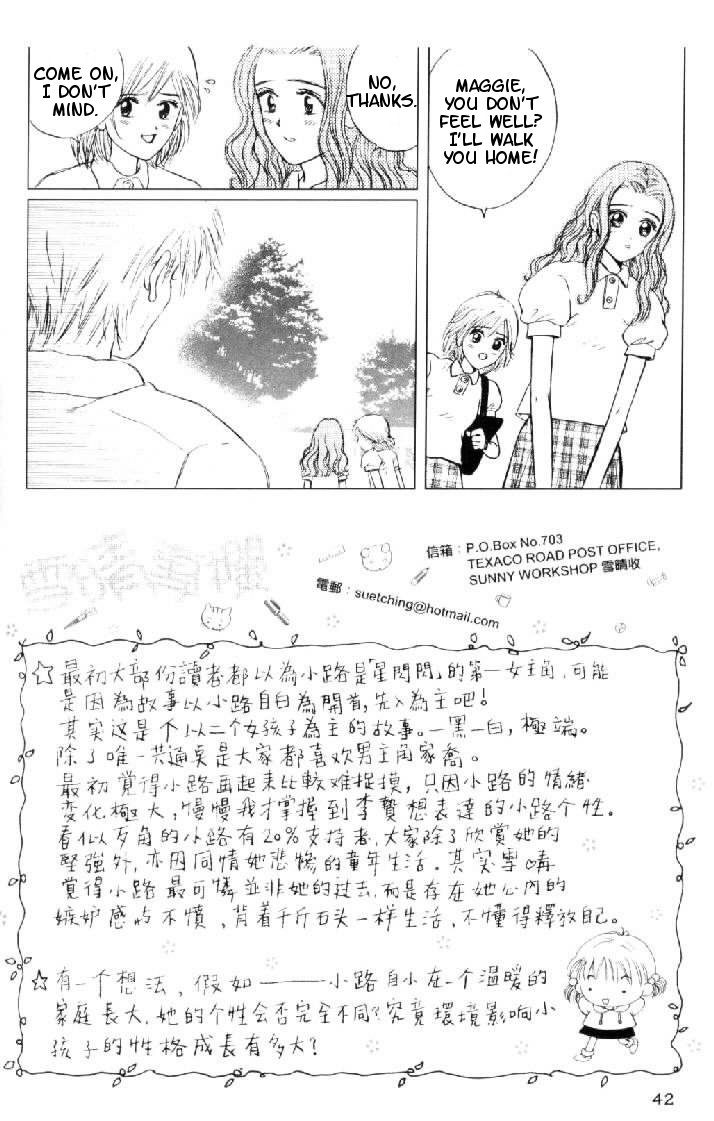 MAGGIE,
YOU DON'T
FEEL WELL?
I'LL WALK
YOU HOME!
NO,
THANKS.
COME ON,
I DON'T
MIND.
信箱：P.O.Box No.703
TEXACO ROAD POST OFFICE,
SUNNY WORKSHOP 雪晴收
電郵：suetching@hotmail.com
☆最初大部份讀者都以為小路是「星閃閃」的第一女主角,可能
是因為故事以小路自白為開首,先入為主吧!
其实这是个以二个女孩子為主的故事。一黑一白,極端。
除了唯一共通奌是大家都喜欢男主角家喬。
最初覚得小路画起来比較难捉摸,只因小路的情緒
变化極大,慢慢我才掌握到李贊想表達的小路个性。
看似歹角的小路有20%支持者,大家除了欣賞她的
堅強外,亦因同情她悲惨的童年生活。其实雪晴
覚得小路最可憐並非她的过去,而是存在她心內的
嫉妒感与不憤,背着千斤石头一样生活,不懂得釋放自己。
☆有一个想法,假如——小路自小在一个溫暖的
家庭長大,她的个性会否完全不同?究竟環境影响小
孩子的性格成長有多大?
42